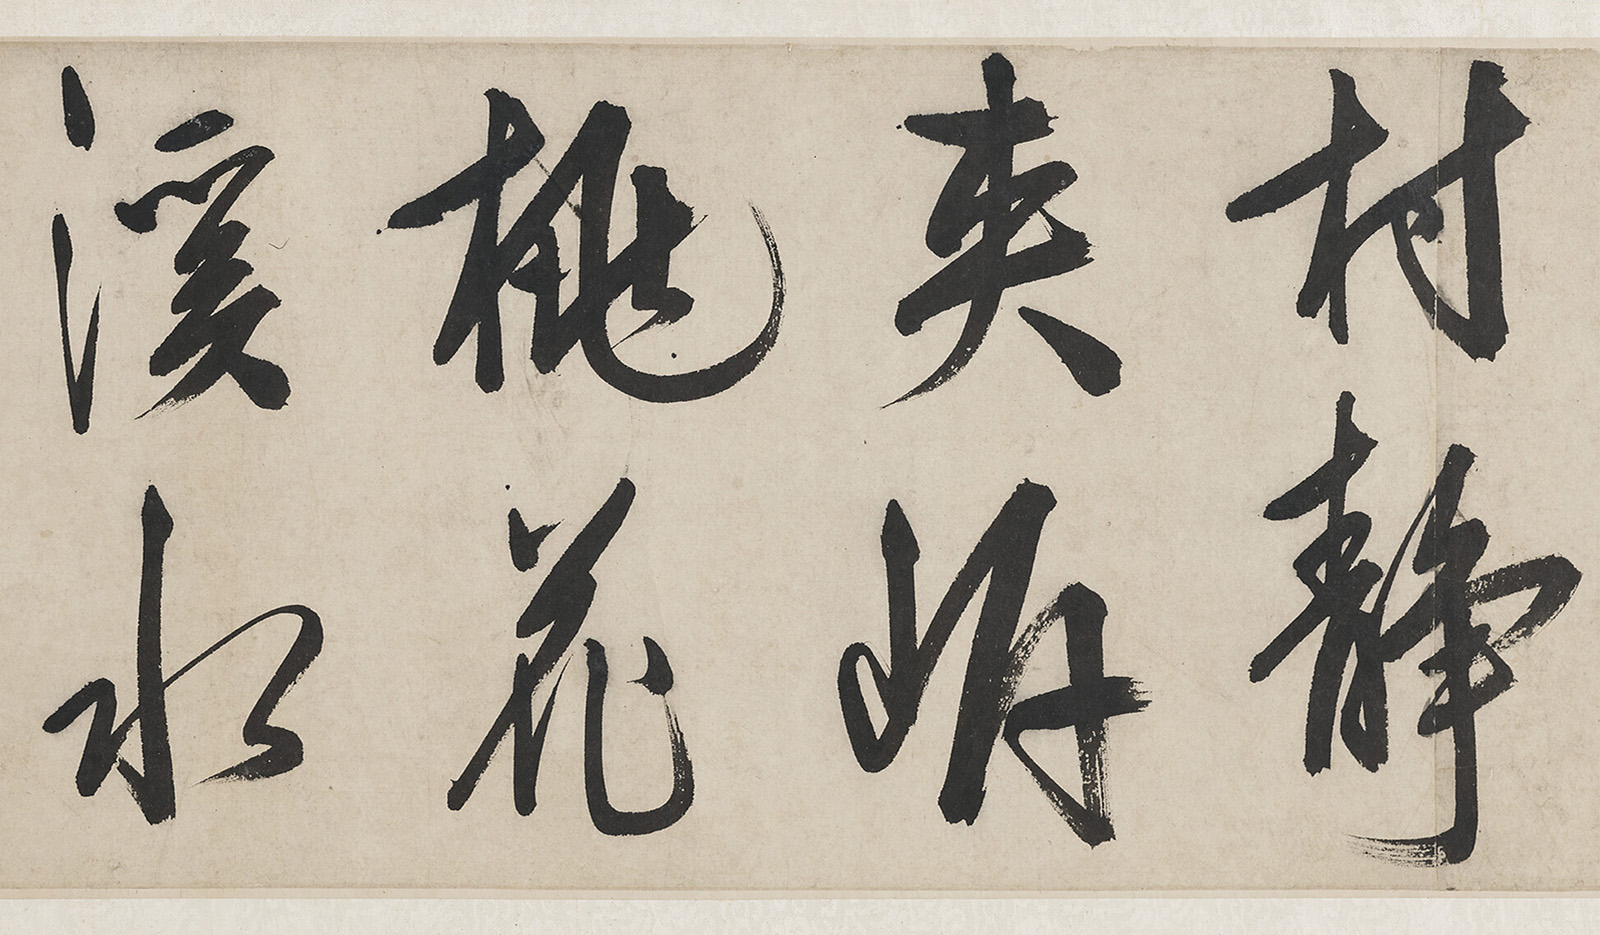 村静
夾岸
桃花
溪水